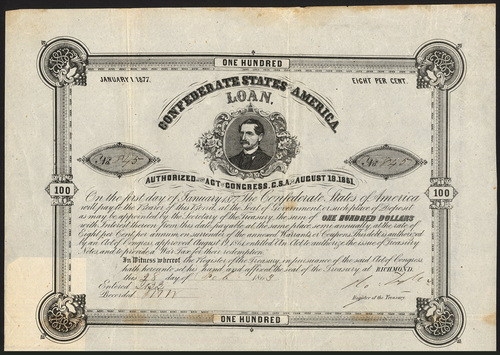 ONE HUNDRED
JANUARY 1, 1877.
EIGHT PER CENT.
CONFEDERATE STATES AMERICA.
LOAN,
No 845
No 845
AUTHORIZED ACT OF CONGRESS, C.S.A. AUGUST 19, 1861.
100
100
On the first day of January, 1877, the Confederate States of America
will pay to the Bearer of this Bond, at the Seat of Government, such place of Deposit
as may be appointed by the Secretary of the Treasury, the sum of ONE HUNDRED DOLLARS
with Interest thereon from this date, payable at the same place, semi annually, at the rate of
Eight per Cent per annum, on surrender of the annexed Warrants or Coupons. This debt is authorized
by an Act of Congress, approved August 19, 1861, entitled An Act to authorize the issue of Treasury
Notes, and to provide a War Tax for their redemption.
In Witness whereof, the Register of the Treasury, in pursuance of the said Act of Congress
hath hereunto set his hand and affixed the seal of the Treasury, at RICHMOND.
this day of 1863
Entered
Recorded
Register of the Treasury.
ONE HUNDRED